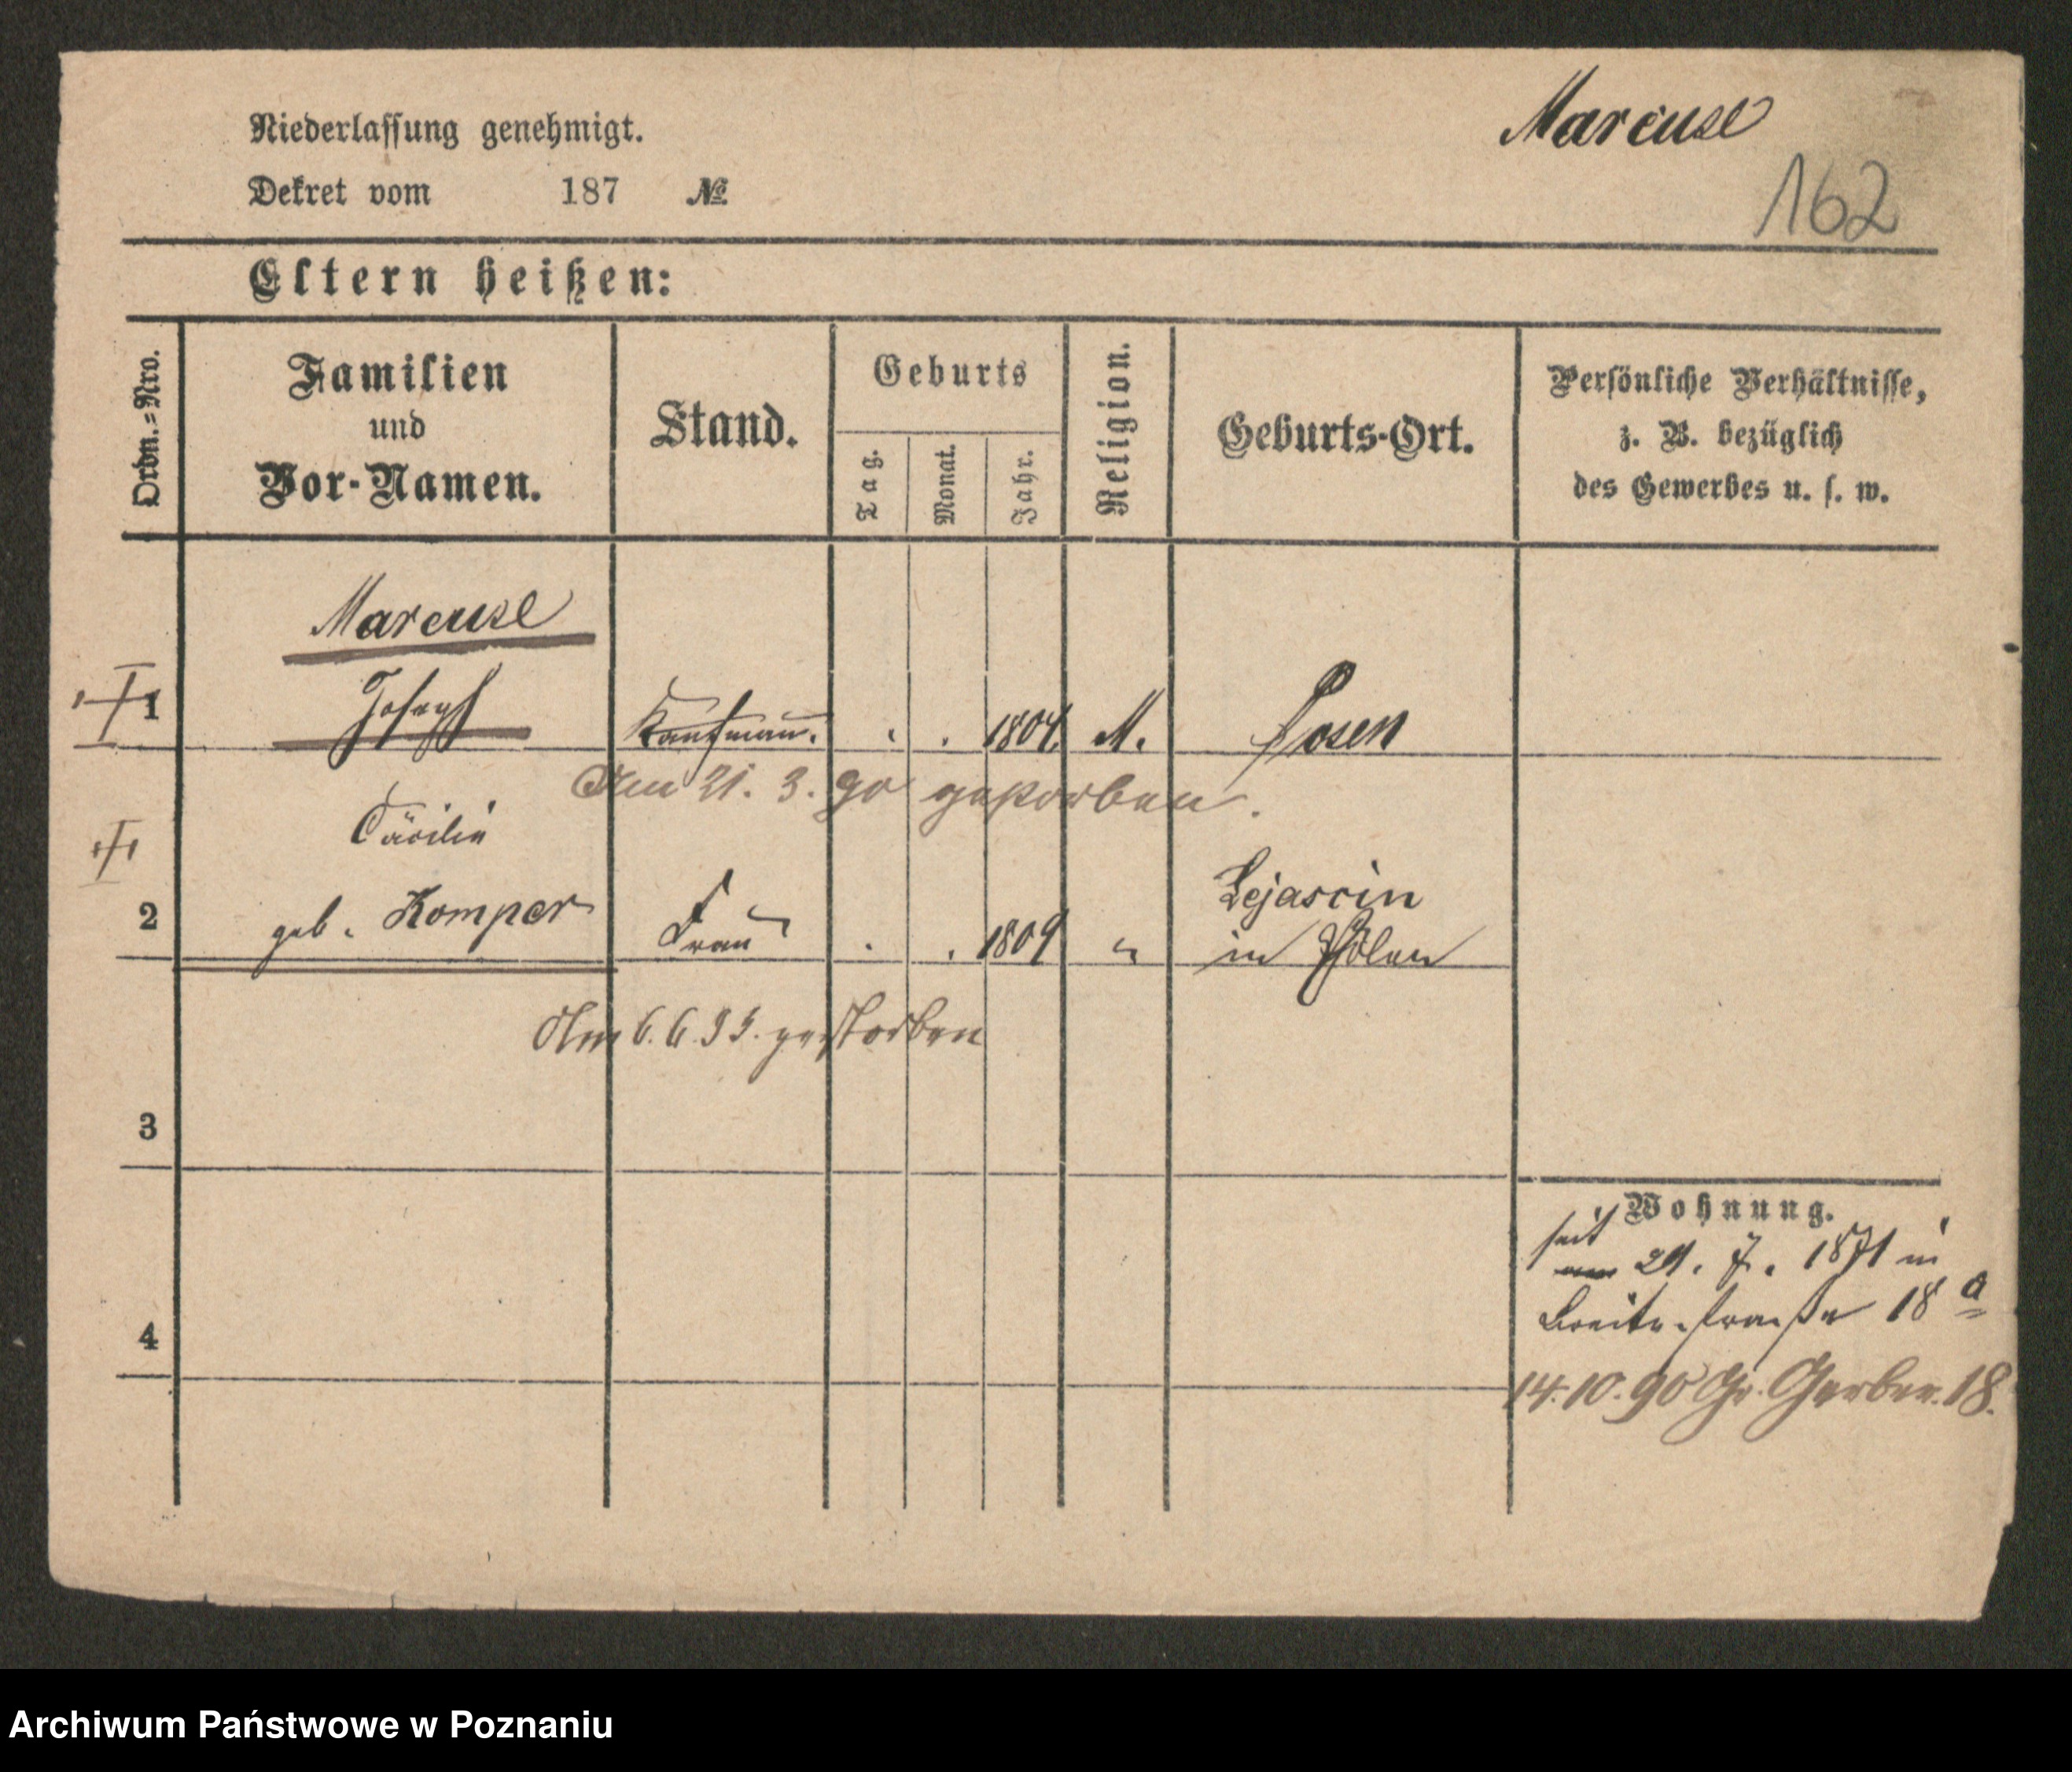 Niederlassung genehmigt.
Marcuse
162
Dekret vom 187 №
Eltern heißen:
Ordn.=Nro.
Familien
und
Vor-Namen.
Stand.
Geburts
Tag.
Monat.
Jahr.
Religion.
Geburts-Ort.
Persönliche Verhältnisse,
z. B. bezüglich
des Gewerbes u. s. w.
Marcuse
1 Joseph Kaufmann. . . 1804 M. Posen
Am 21. 3. 90 gestorben.
Cäcilie
2 geb. Komper Frau . . 1809 "
in Polen
Am 6. 6. 93. gestorben
3
4
Wohnung.
seit
am 29. 7. 1871 in
Breite-straße 18 a
14. 10. 90 Gr. Gerber. 18.
Archiwum Państwowe w Poznaniu